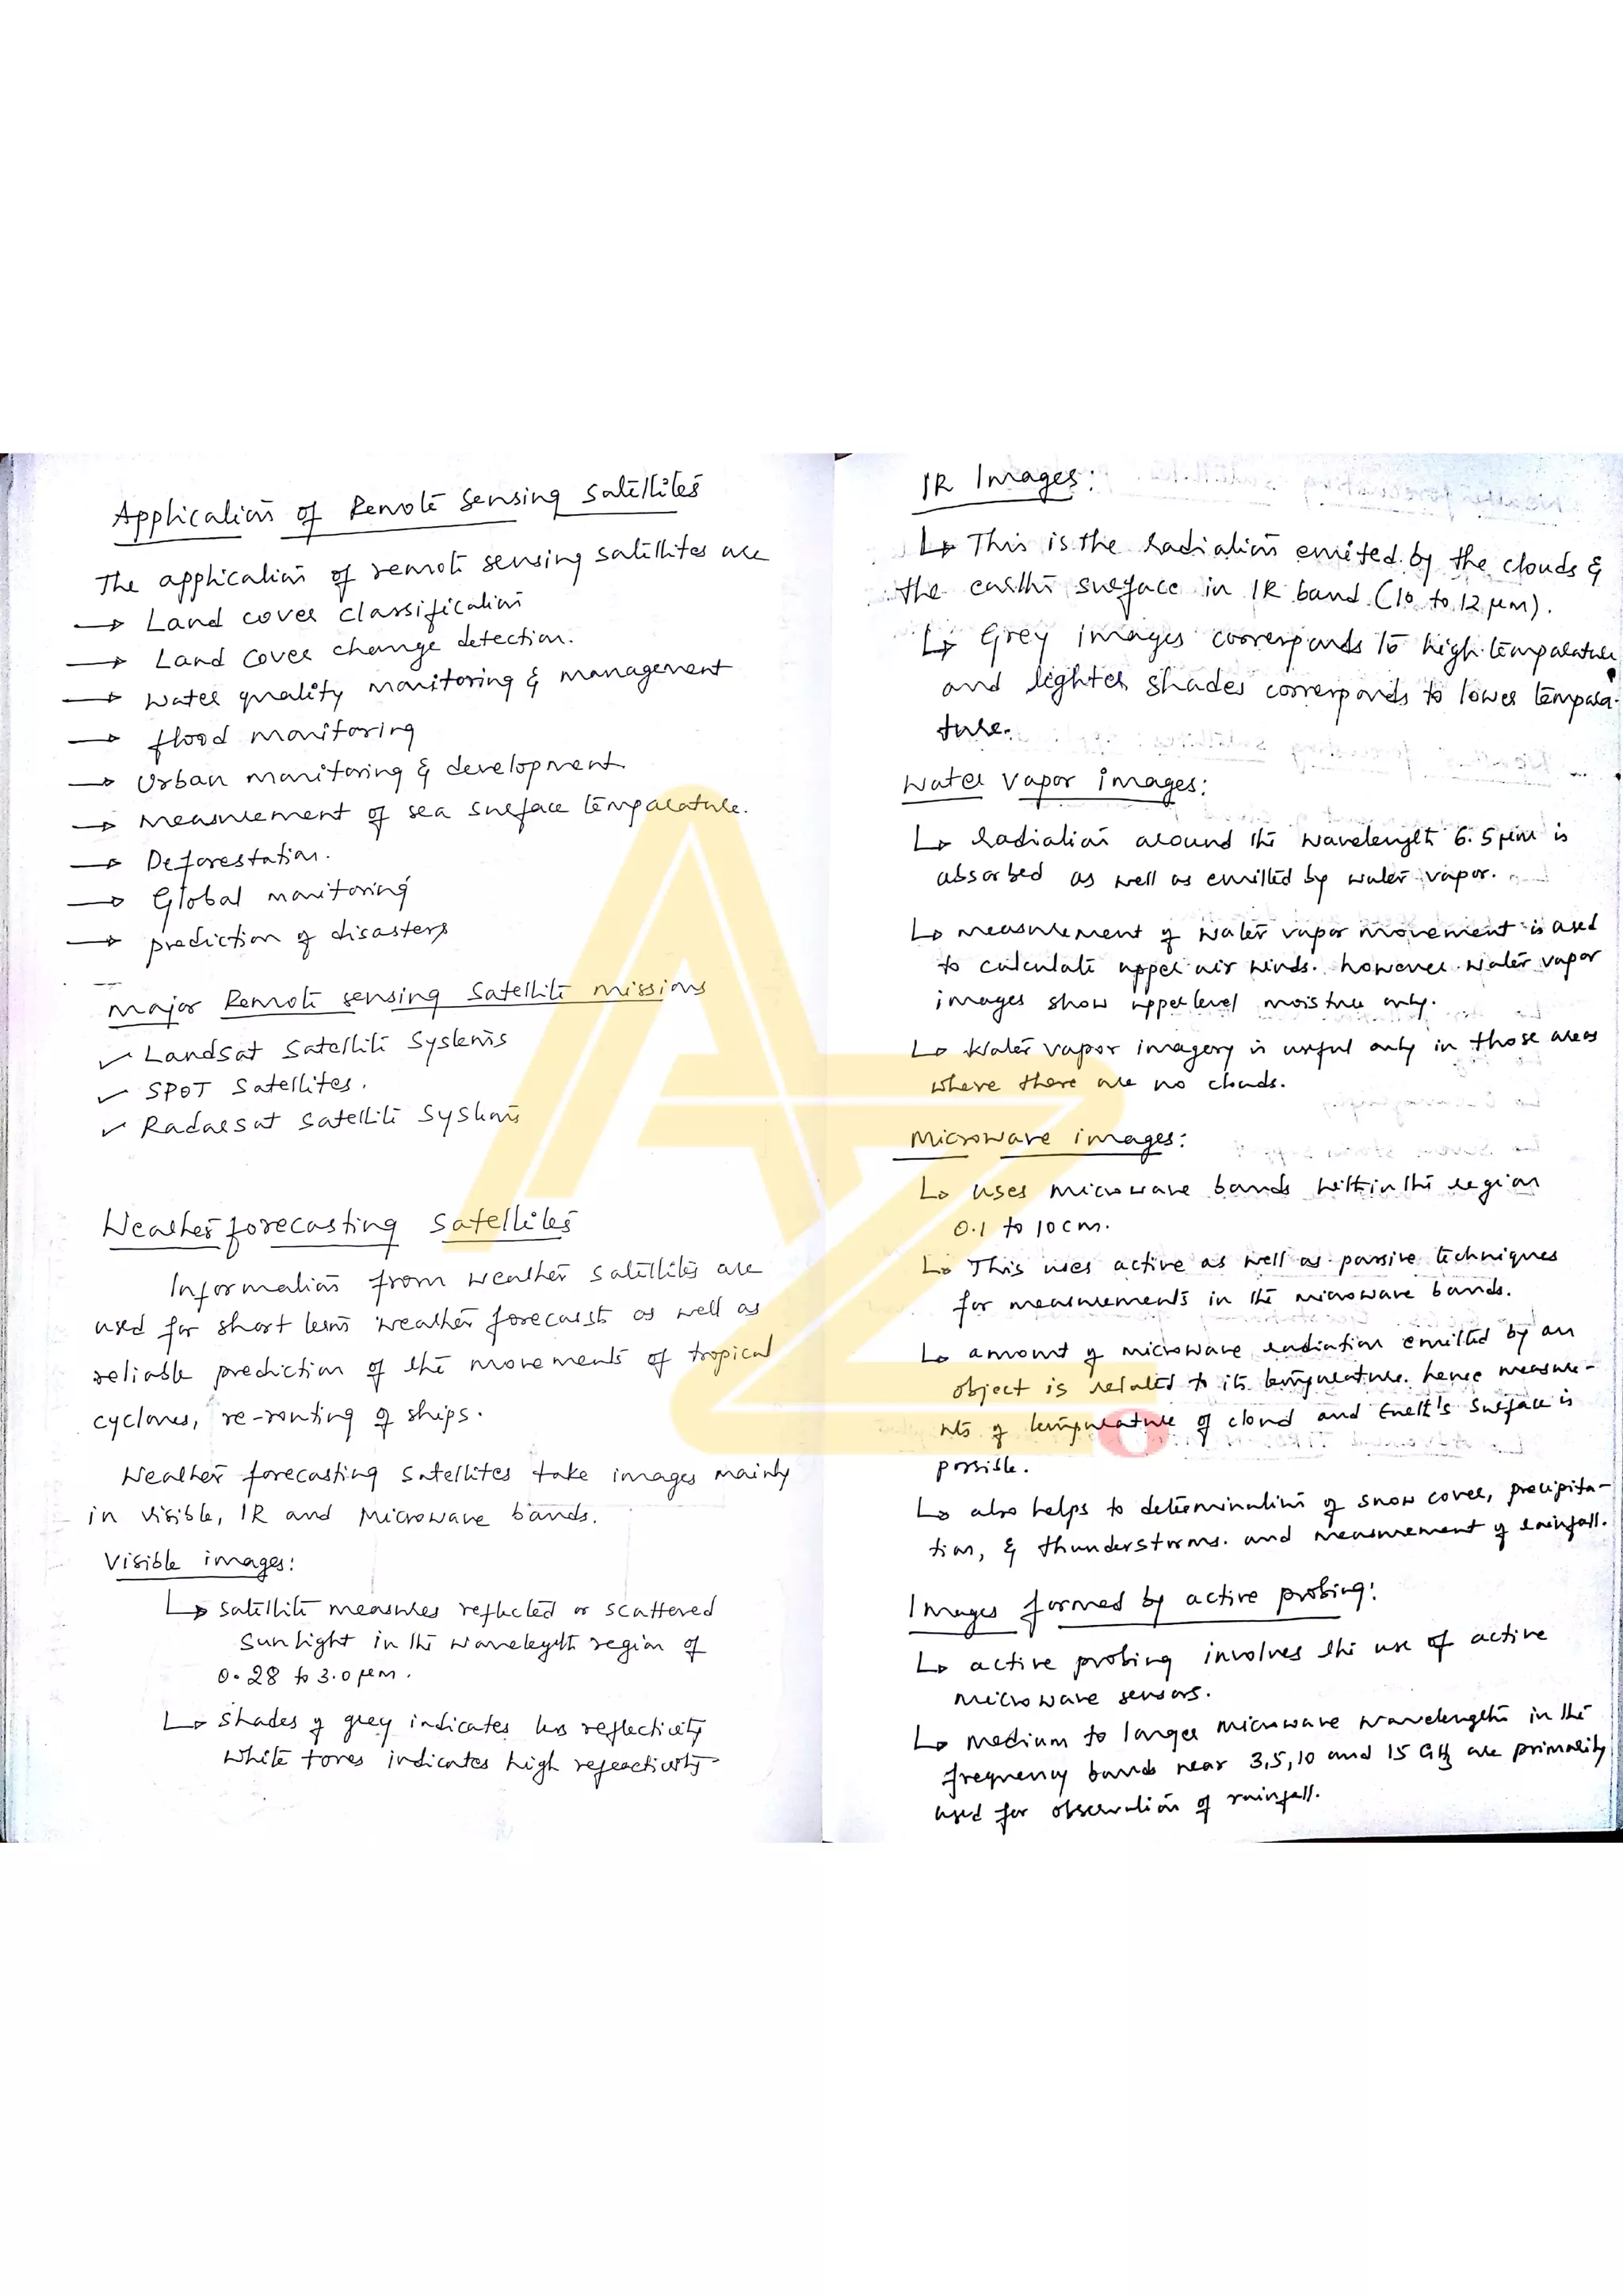 Application of Remote Sensing Satellites
The application of remote sensing satellites are
→ Land cover classification
→ Land cover change detection.
→ Water quality monitoring & management
→ flood monitoring
→ Urban monitoring & development
→ Measurement of sea surface temparature.
→ Deforestation.
→ Global monitoring
→ prediction of disasters
Major Remote sensing Satellite missions
✓ Landsat Satellite Systems
✓ SPOT Satellites.
✓ Radarsat Satellite Systems
Weather forecasting Satellites
Information from weather satellites are
used for short term weather forecasts as well as
reliable prediction of the movements of tropical
cyclones, re-routing of ships.
Weather forecasting Satellites take images mainly
in visible, IR and Microwave bands.
Visible images:
↳ Satellite measures reflected or scattered
Sunlight in the wavelength region of
0.28 to 3.0 μm.
↳ Shades of grey indicates less reflectivity
White tones indicates high reflectivity
IR Images:
↳ This is the radiation emitted by the clouds &
the earths surface in IR band (10 to 12 μm).
↳ Grey images corresponds to high temparature
and lighter shades corresponds to lower tempara-
ture.
Water Vapor images:
↳ Radiation around the wavelength 6.5 μm is
absorbed as well as emitted by water vapor.
↳ measurement of water vapor movement is used
to calculate upper air winds. however water vapor
images show upper level moisture only.
↳ Water vapor imagery is useful only in those areas
where there are no clouds.
Microwave images:
↳ uses microwave bands within the region
0.1 to 10 cm.
↳ This uses active as well as passive techniques
for measurements in the microwave bands.
↳ amount of microwave radiation emitted by an
object is related to its temperature. hence measure-
nts of temperature of cloud and Earth's surface is
possible.
↳ also helps to determination of snow cover, precipita-
tion, & thunderstorms. and measurement of rainfall.
Images formed by active probing:
↳ active probing involves the use of active
microwave sensors.
↳ Medium to larger microwave wavelengths in the
frequency bands near 3,5,10 and 15 GHz are primarily
used for observation of rainfall.
AZ